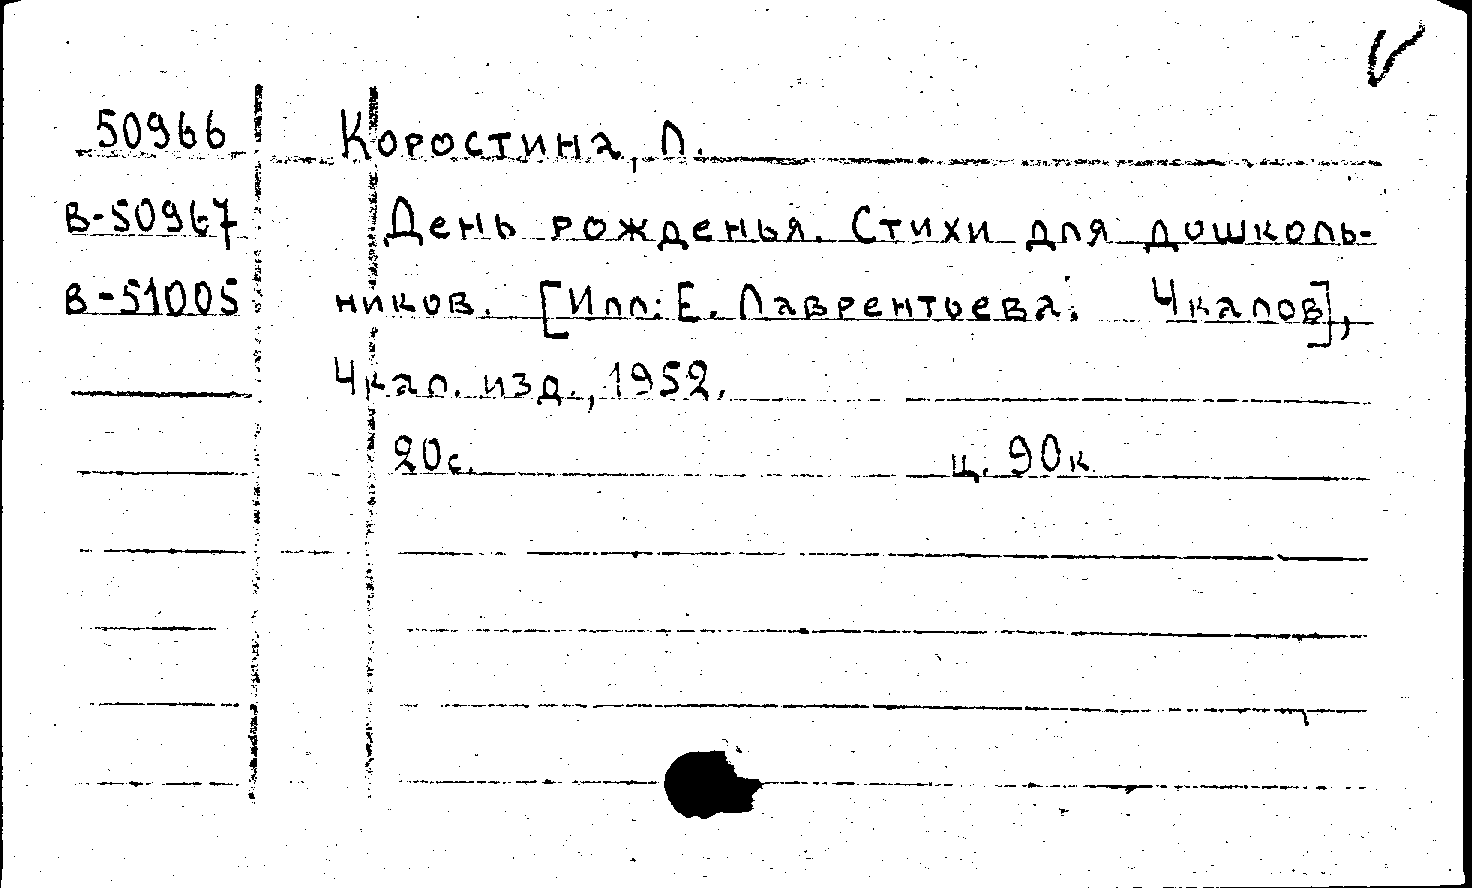 50966 Коростина, Л.
В-50967 День рожденья. Стихи для дошколь-
В-51005 ников. [Илл: Е. Лаврентьева. Чкалов],
Чкал. изд., 1952.
20с. ц. 90к